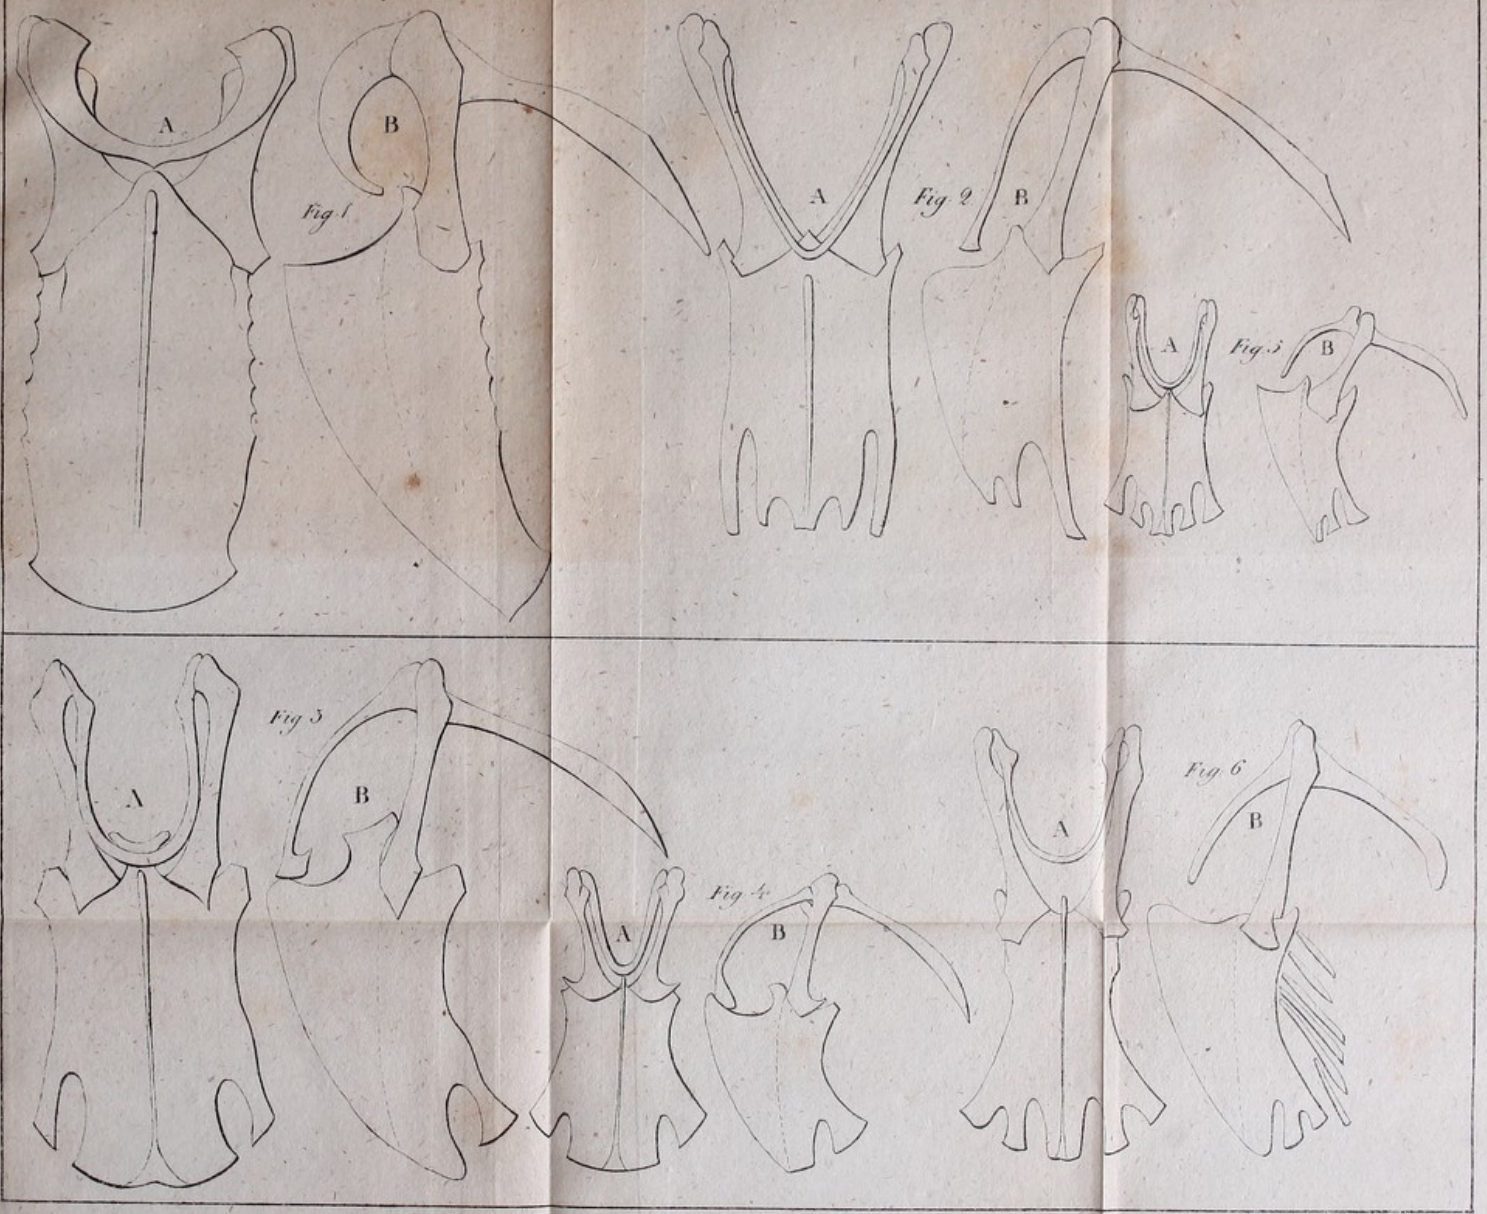 A
B
Fig. 1
A
Fig. 2
B
A
Fig. 5
B
Fig 3
A
B
Fig. 4
A
B
Fig. 6
A
B